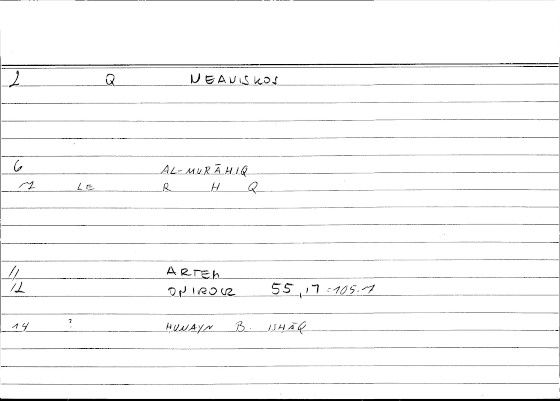 2 Q NEANISKOS
6 AL-MURĀHIQ
7 LE R H Q
11 ARTEM
12 ONIROCR 55,17:105.7
14 ? HUNAYN B. ISHĀQ